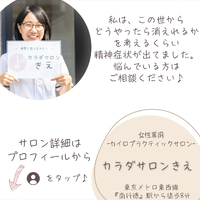 カラダサロン
きえ
私は、この世から
どうやったら消えれるか
を考えるくらい
精神症状が出てました。
悩んでいる方は
ご相談ください♪
サロン詳細は
プロフィールから
をタップ♪
女性専用
-カイロプラクティックサロン-
カラダサロンきえ
東京メトロ東西線
『南行徳』駅から徒歩8分